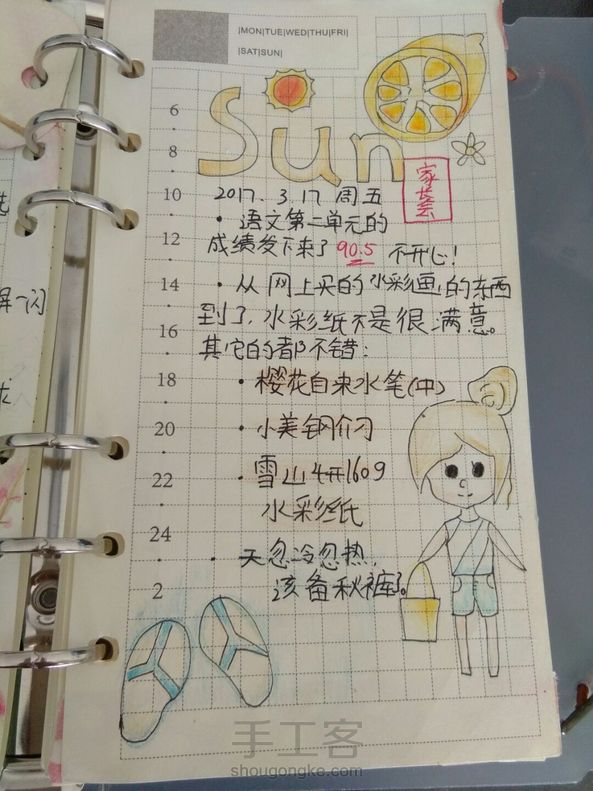 |MON|TUE|WED|THU|FRI|
|SAT|SUN|
Sun
家长会
2017. 3. 17 周五
• 语文第二单元的
成绩发下来了 90.5 不开心!
• 从网上买的"水彩画"的东西
到了,水彩纸不是很满意。
其它的都不错:
• 樱花自来水笔(中)
• 小美钢介刀
• 雪山4开160g
水彩纸
• 天忽冷忽热,
该备秋裤了。
6
8
10
12
14
16
18
20
22
24
2
手工客
shougongke.com